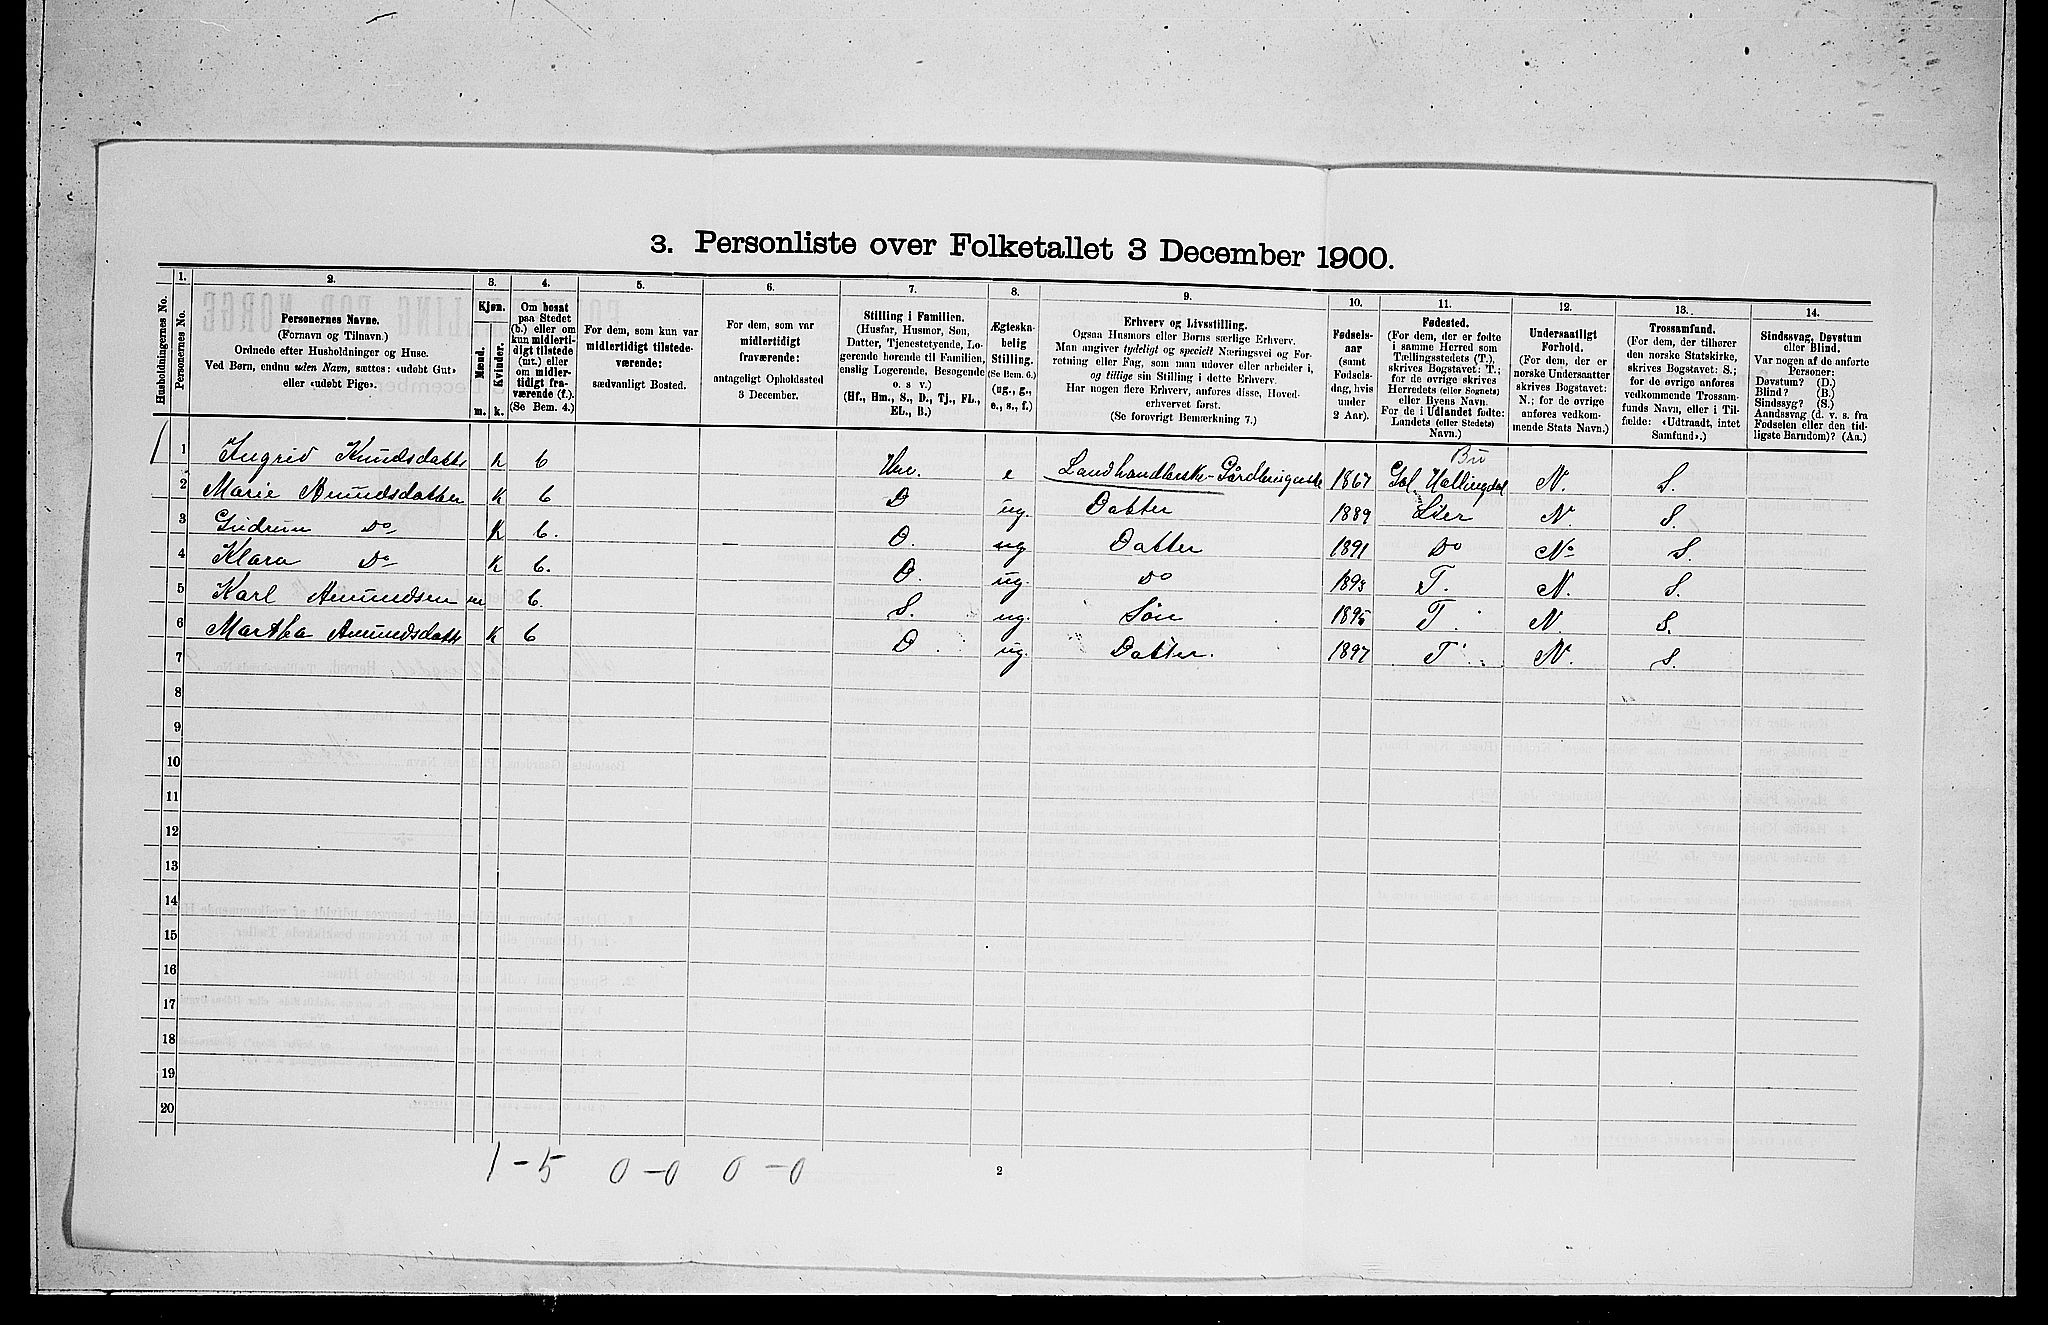 3. Personliste over Folketallet 3 December 1900.
Husholdningernes No.
1.
Personernes No.
2.
Personernes Navne.
(Fornavn og Tilnavn.)
Ordnede efter Husholdninger og Huse.
Ved Børn, endnu uden Navn, sættes: «udøbt Gut»
eller «udøbt Pige».
3.
Kjøn.
Mænd.
Kvinder.
m. k.
4.
Om bosat
paa Stedet
(b.) eller om
kun midlerti-
digt tilstede
(mt.) eller
om midler-
tidigt fra-
værende (f.).
(Se Bem. 4.)
5.
For dem, som kun var
midlertidigt tilstede-
værende:
sædvanligt Bosted.
6.
For dem, som var
midlertidigt
fraværende:
antageligt Opholdssted
3 December.
7.
Stilling i Familien.
(Husfar, Husmor, Søn,
Datter, Tjenestetyende, Lo-
gerende hørende til Familien,
enslig Logerende, Besøgende
o. s v.)
(Hf., Hm., S., D., Tj., FL.,
EL., B.)
8.
Ægteska-
belig
Stilling.
(Se Bem. 6.)
(ug., g.,
e., s., f.)
9.
Erhverv og Livsstilling.
Ogsaa Husmors eller Børns særlige Erhverv.
Man angiver tydeligt og specielt Næringsvei og For-
retning eller Fag, som man udøver eller arbeider i,
og tillige sin Stilling i dette Erhverv.
Har nogen flere Erhverv, anføres disse, Hoved-
erhvervet først.
(Se forøvrigt Bemærkning 7.)
10.
Fødsels-
aar
(samt
Fødsels-
dag, hvis
under
2 Aar).
11.
Fødested.
(For dem, der er fødte
i samme Herred som
Tællingsstedets (T.),
skrives Bogstavet: T.;
for de øvrige skrives
Herredets (eller Sognets)
eller Byens Navn.
For de i Udlandet fødte:
Landets (eller Stedets)
Navn.)
12.
Undersaatligt
Forhold.
(For dem, der er
norske Undersaatter
skrives Bogstavet:
N.; for de øvrige
anføres vedkom-
mende Stats Navn.)
13.
Trossamfund.
(For dem, der tilhører
den norske Statskirke,
skrives Bogstavet: S.;
for de øvrige anføres
vedkommende Trossam-
funds Navn, eller i Til-
fælde: «Udtraadt, intet
Samfund».)
14.
Sindssvag, Døvstum
eller Blind.
Var nogen af de anførte
Personer:
Døvstum? (D.)
Blind? (B.)
Sindssyg? (S.)
Aandssvag (d. v. s. fra
Fødselen eller den tid-
ligste Barndom)? (Aa.)
1 1 Ingrid Knudsdatts k b Hm. e Landhandlerske-Gårdbrugerske 1867 Gol. Hallingdal Bu N. S.
2 Marie Amundsdatter k b D ug. Datter 1889 Lier N. S.
3 Gudrun Do k b. D. ug Datter 1891 Do N. S.
4 Klara Do k b. D. ug. Do 1893 T. N. S.
5 Karl Amundsen m b. S. ug. Søn 1895 T. N. S.
6 Martha Amundsdatts k b D. ug. Datter. 1897 T N. S.
7
8
9
10
11
12
13
14
15
16
17
18
19
20
1-5 0-0 0-0
2